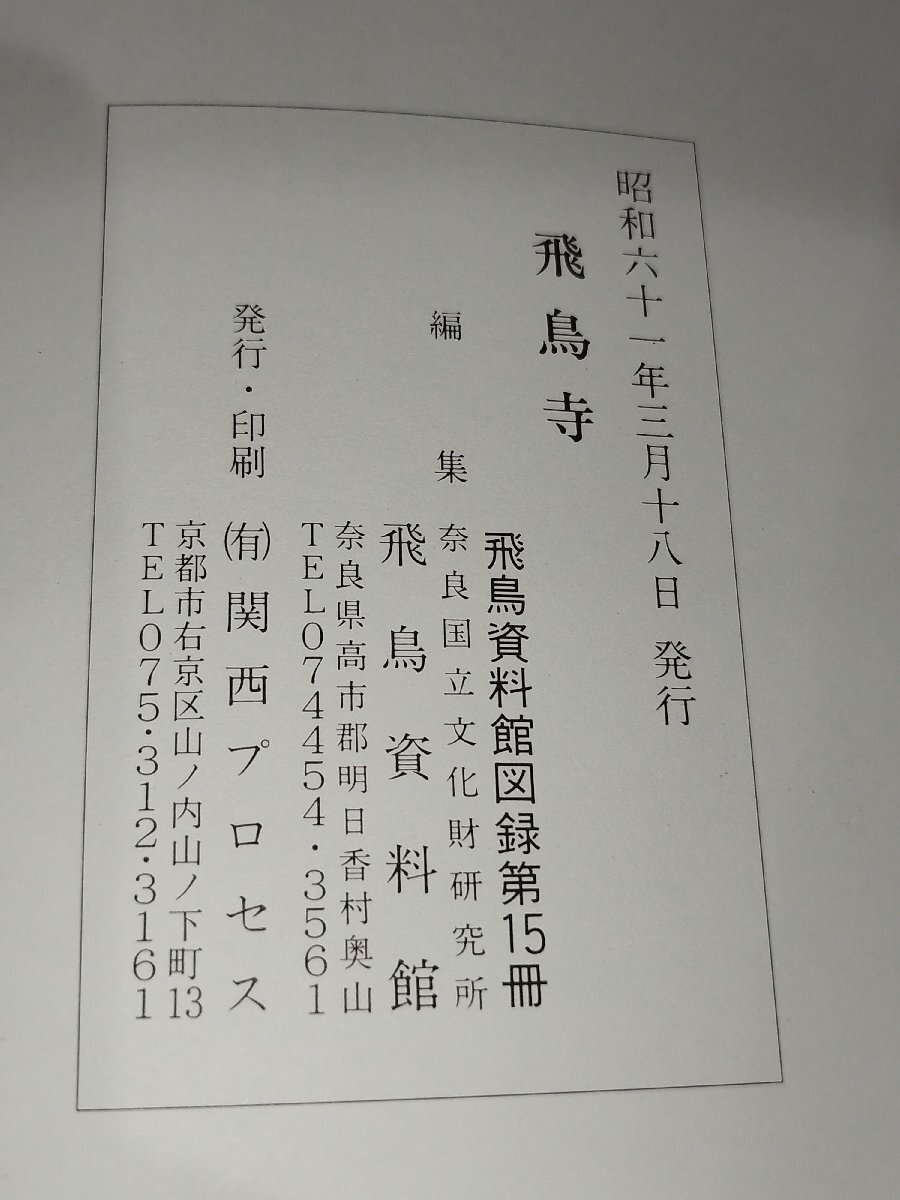 昭和六十一年三月十八日 発行
飛鳥寺
飛鳥資料館図録第15冊
編集 奈良国立文化財研究所
飛鳥資料館
奈良県高市郡明日香村奥山
TEL07445４・3561
発行・印刷 ㈲関西プロセス
京都市右京区山ノ内山ノ下町13
TEL075・312・3161